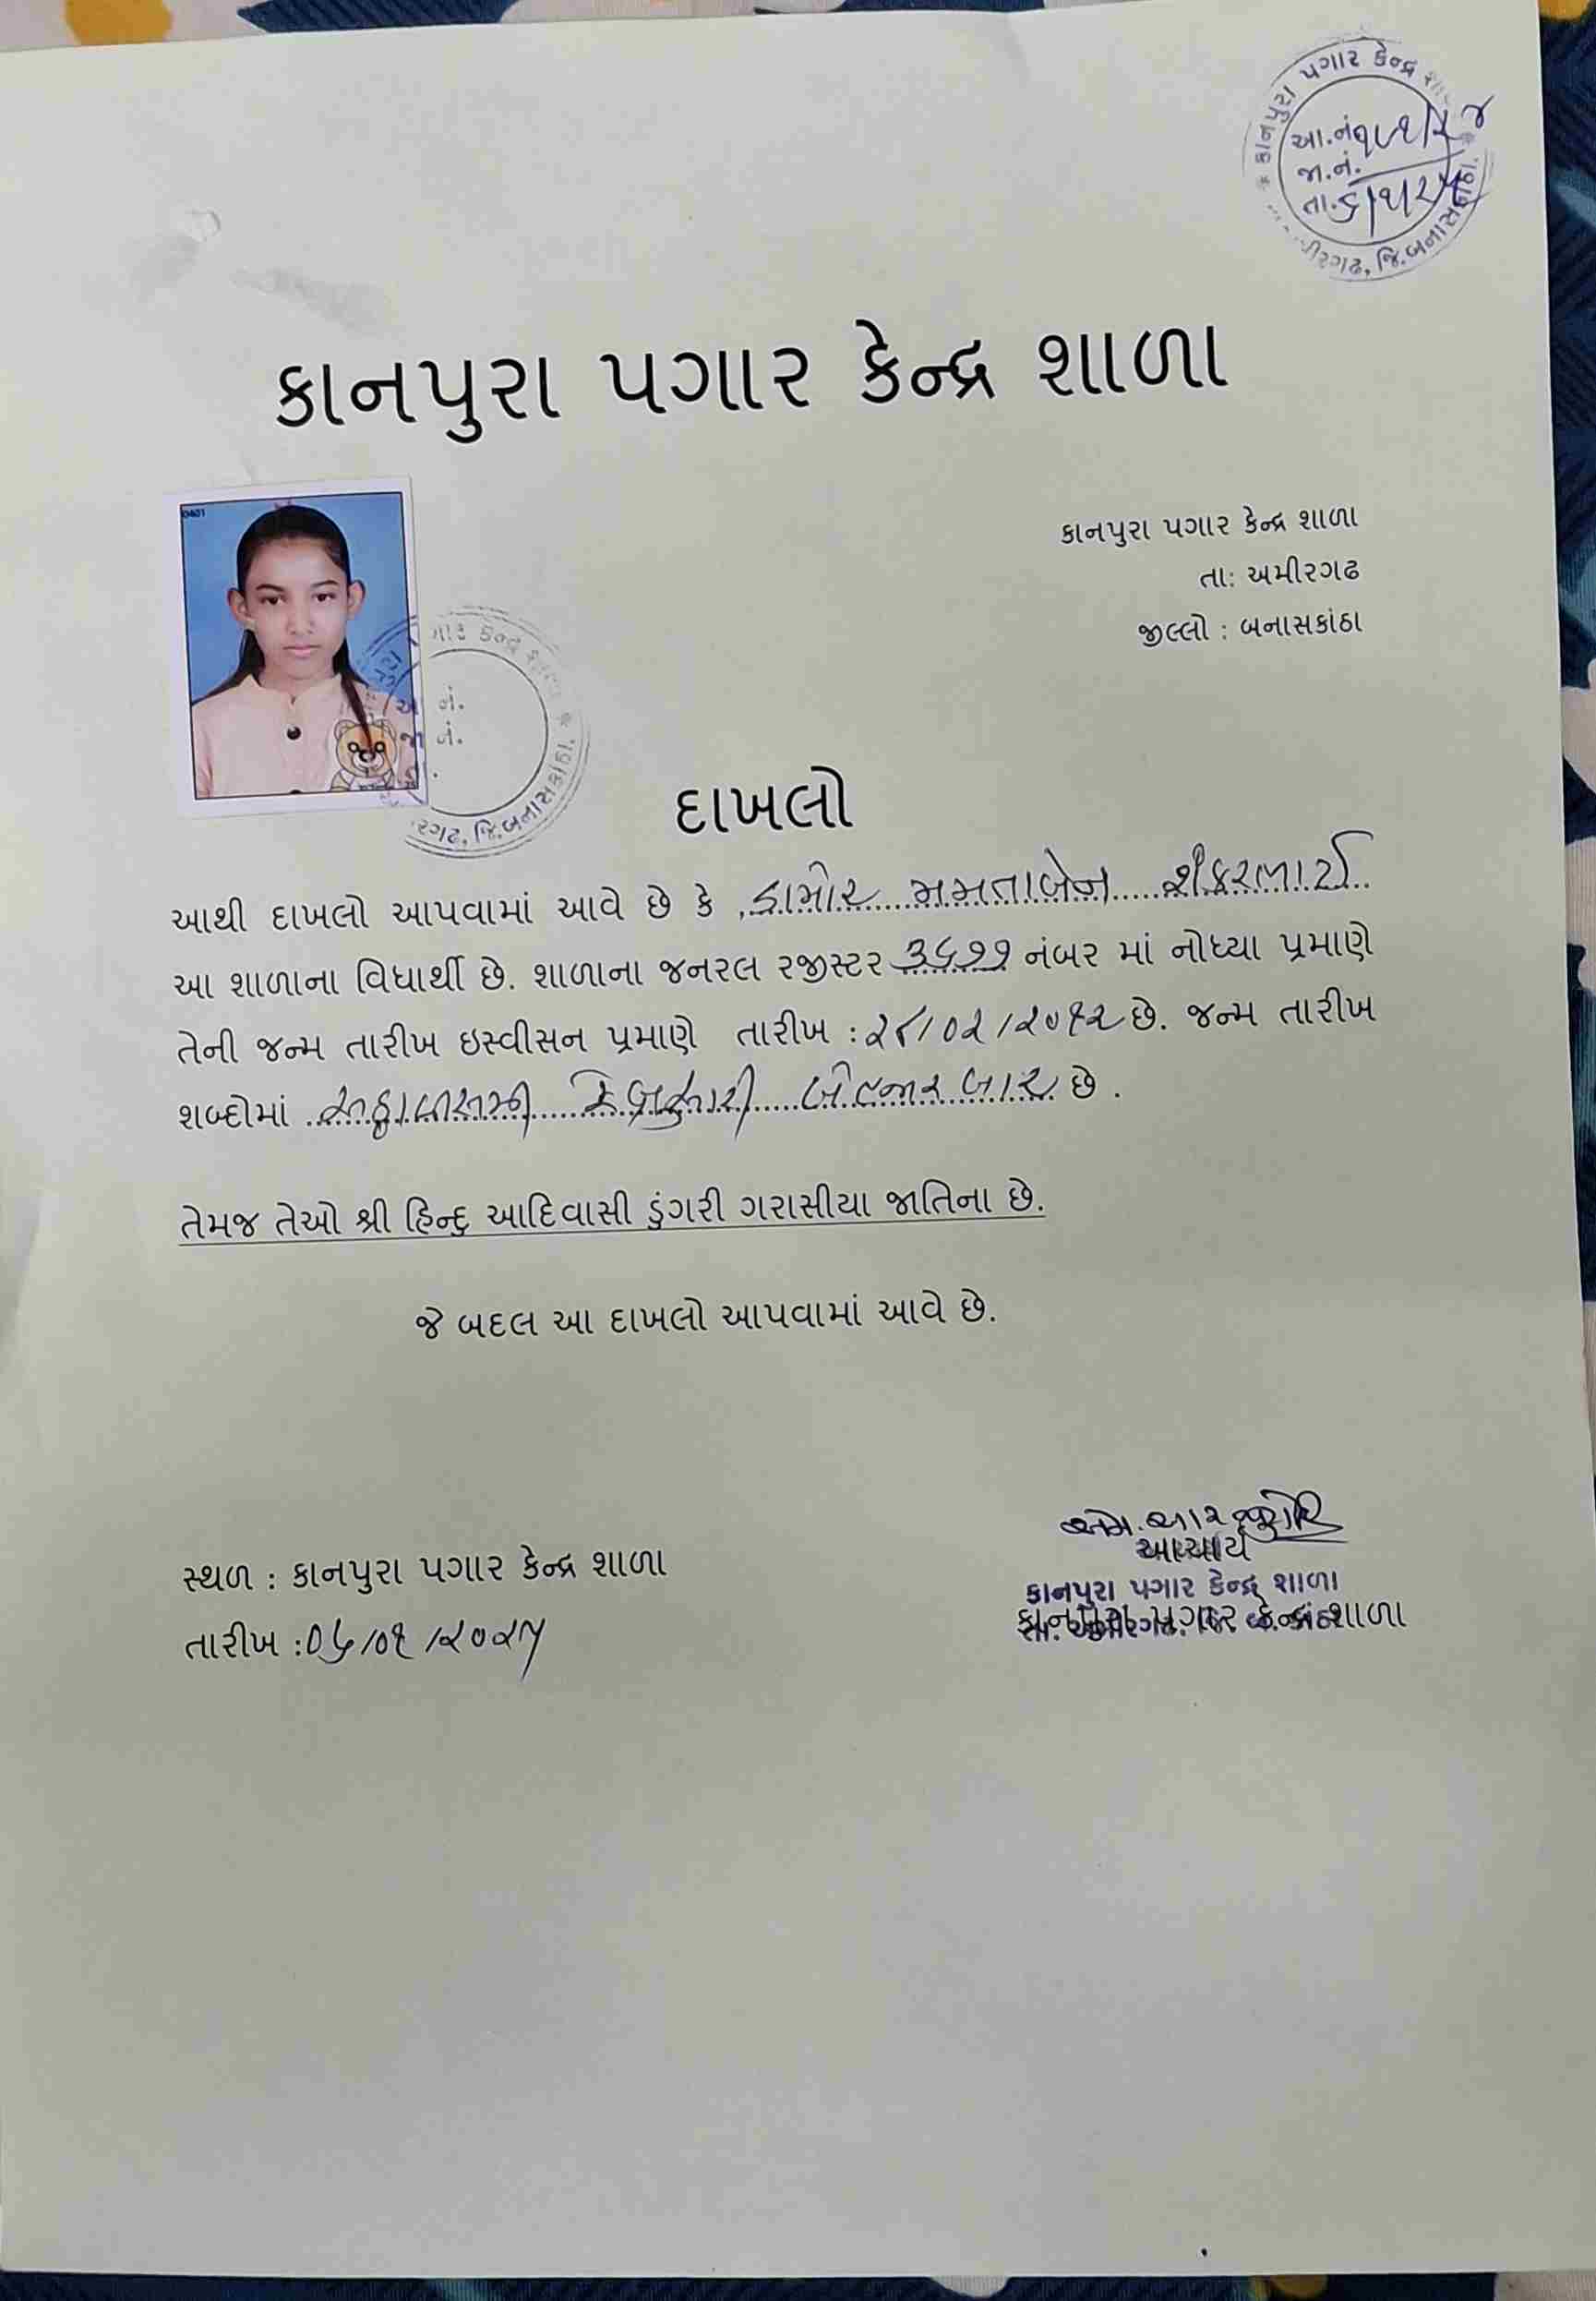 કાનપુરા પગાર કેન્દ્ર
આ.નં.
જા.નં.
તા.
જિ.બનાસકાંઠા.
કાનપુરા પગાર કેન્દ્ર શાળા
0401
કાનપુરા પગાર કેન્દ્ર શાળા
તા: અમીરગઢ
જીલ્લો : બનાસકાંઠા
નં.
નં.
જિ.બનાસકાંઠા.
દાખલો
આથી દાખલો આપવામાં આવે છે કે ડામોર મમતાબેન શંકરભાઈ
આ શાળાના વિધાર્થી છે. શાળાના જનરલ રજીસ્ટર ૩૬૧૧ નંબર માં નોધ્યા પ્રમાણે
તેની જન્મ તારીખ ઇસ્વીસન પ્રમાણે તારીખ : ૨૮/૦૨/૨૦૧૨ છે. જન્મ તારીખ
શબ્દોમાં અઠ્ઠાવીસમી ફેબ્રુઆરી બે હજાર બાર છે .
તેમજ તેઓ શ્રી હિન્દુ આદિવાસી ડુંગરી ગરાસીયા જાતિના છે.
જે બદલ આ દાખલો આપવામાં આવે છે.
એમ. આર
આચાર્ય
કાનપુરા પગાર કેન્દ્ર શાળા
કાનપુરા પગાર કેન્દ્ર શાળા
સ્થળ : કાનપુરા પગાર કેન્દ્ર શાળા
તારીખ : ૦૬/૦૧/૨૦૨૫